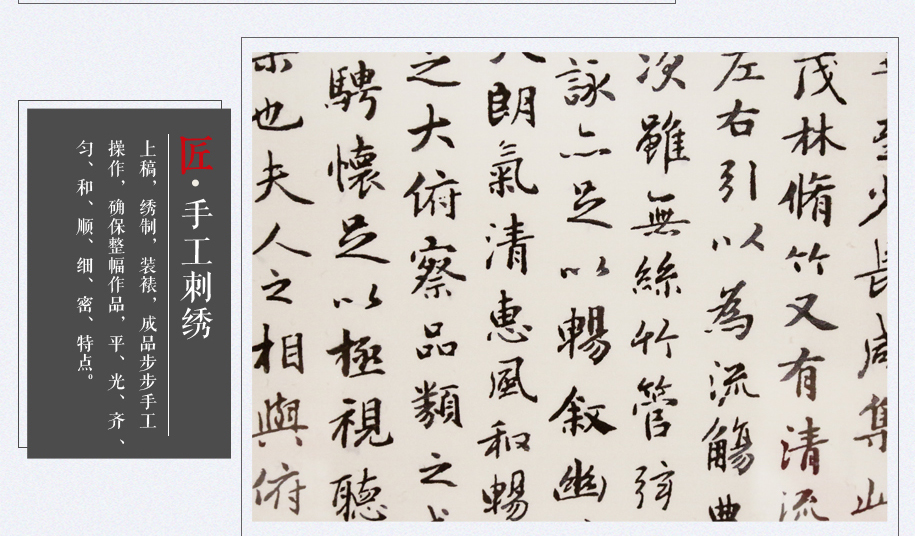 匠·手工刺绣
上稿，绣制，装裱，成品步步手工
操作，确保整幅作品，平、光、齐、
匀、和、顺、细、密、特点。
至少長咸集山
茂林脩竹又有清流
左右引以為流觴曲
次雖無絲竹管弦
詠亦足以暢叙幽
朗氣清惠風和暢
之大俯察品類之
騁懷足以極視聽
也夫人之相與俯